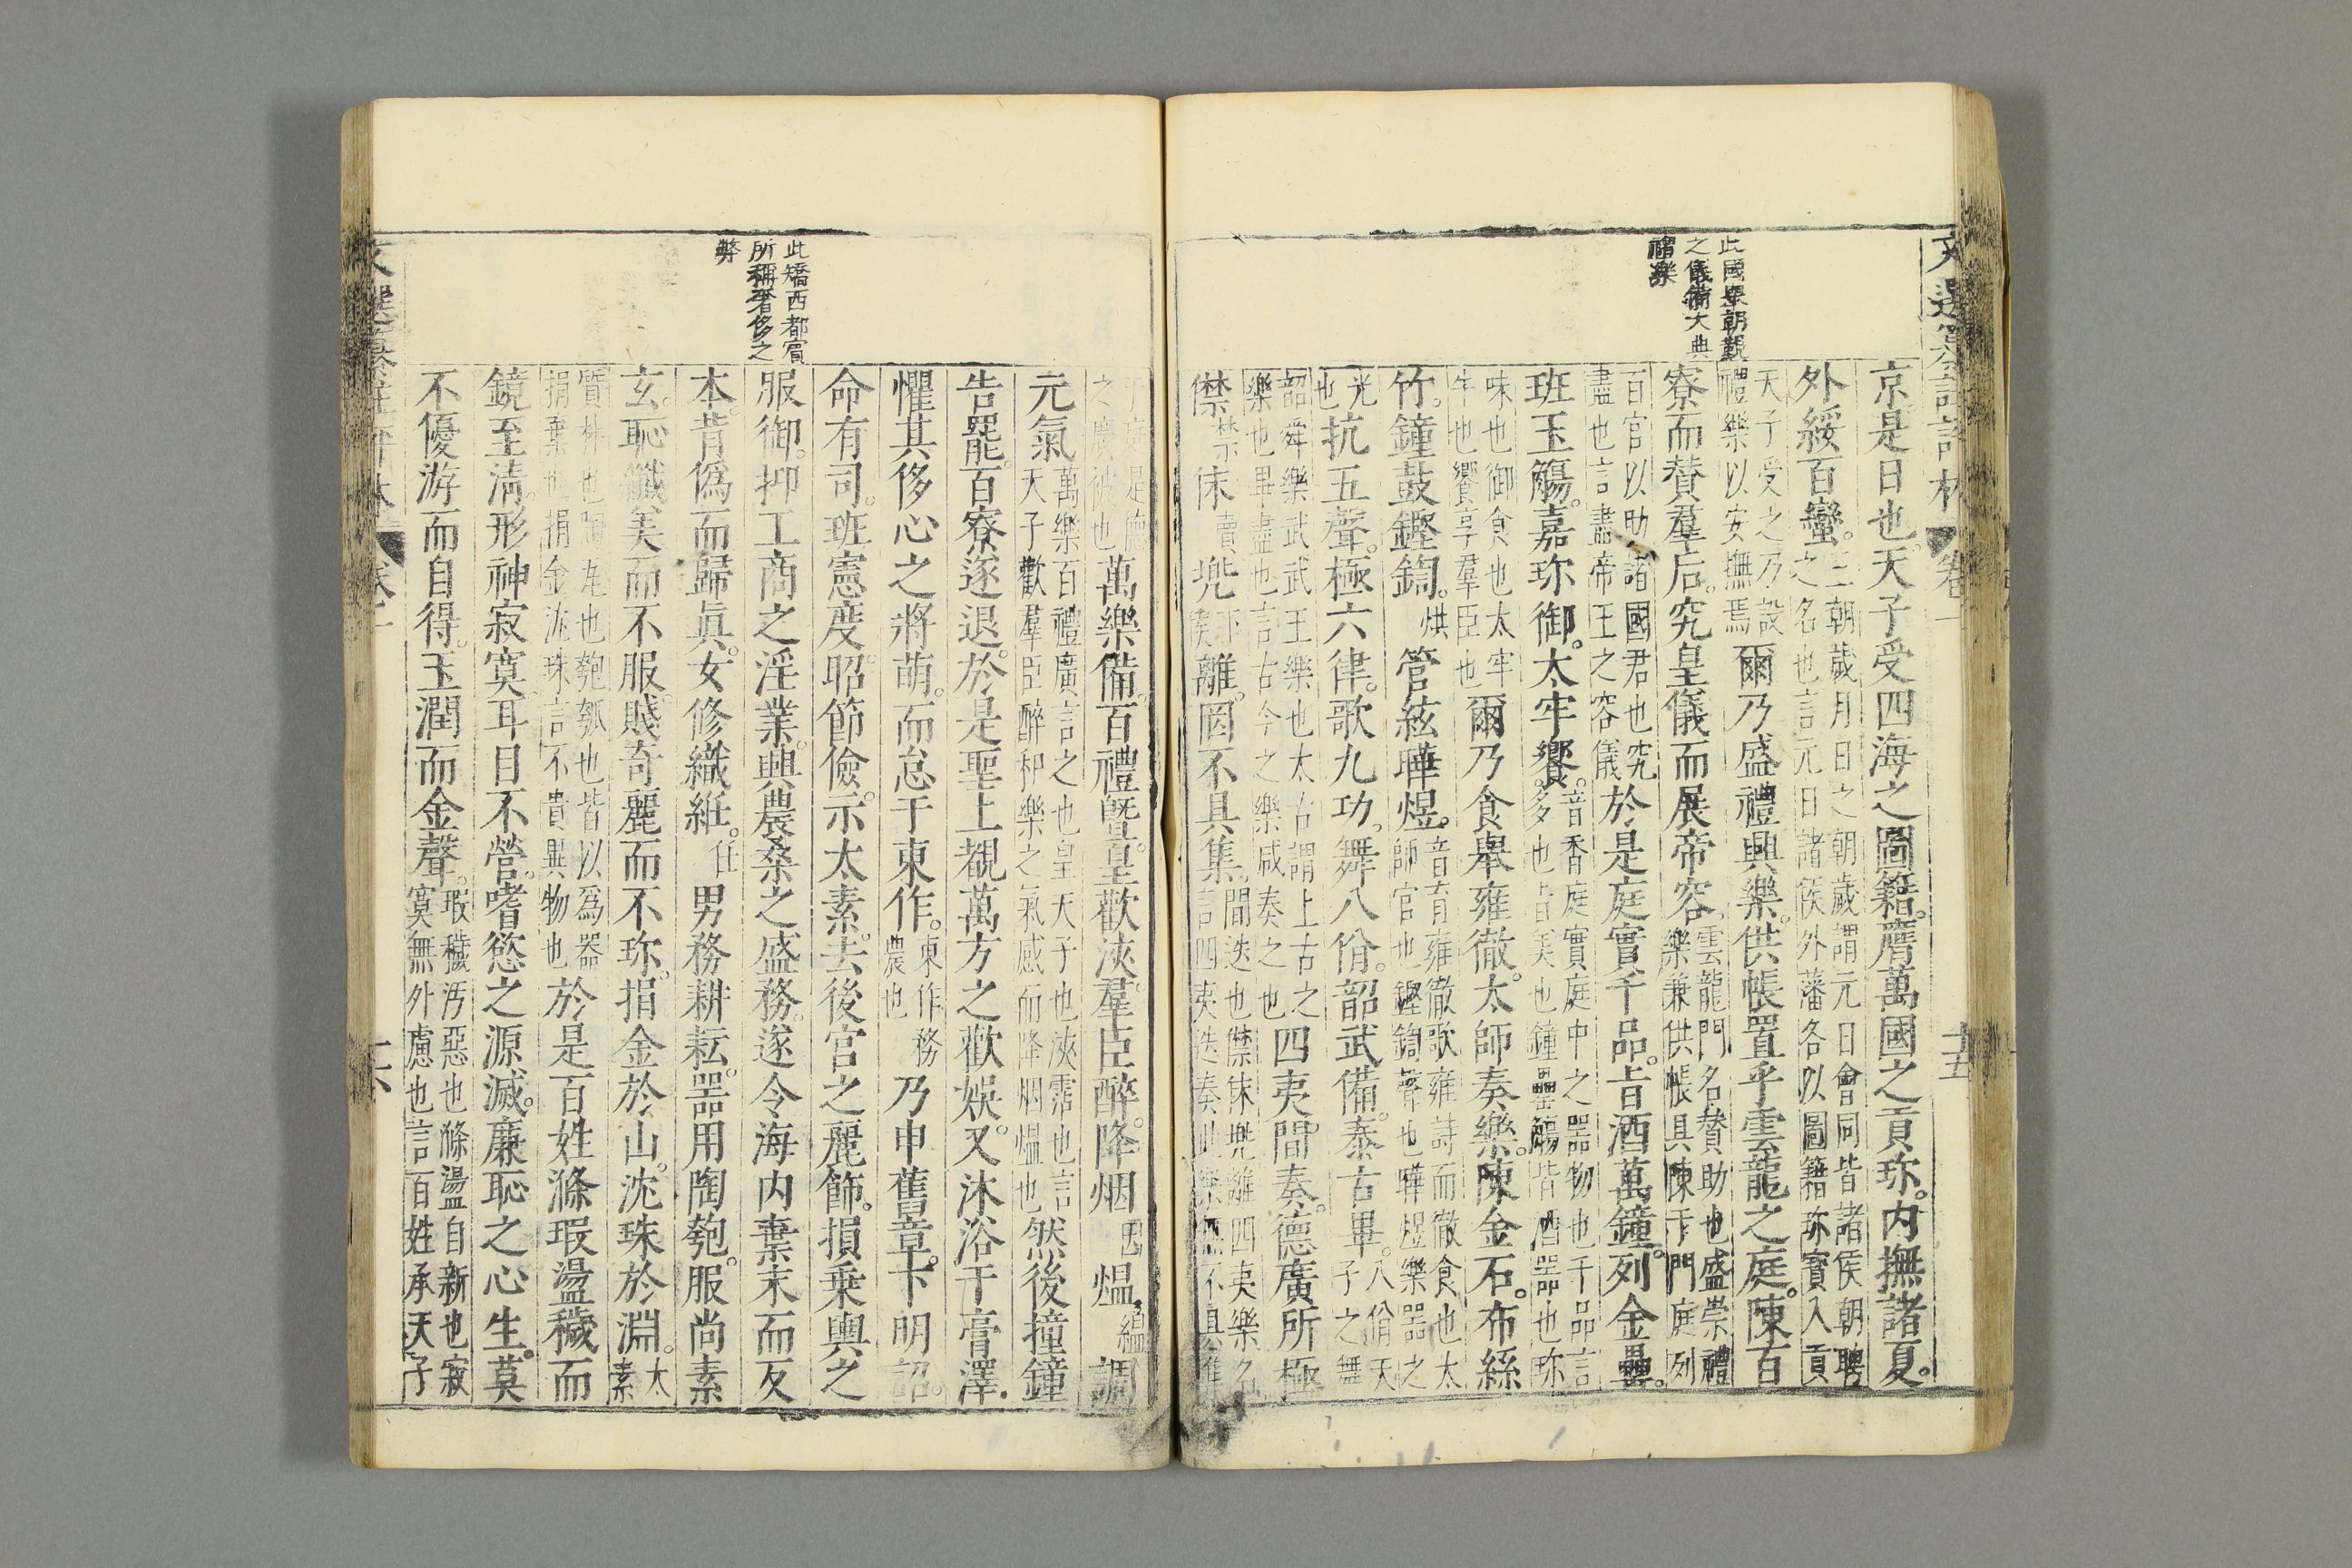 文選纂註評林 卷一
十五
此國舉朝覲
之儀備大典
諸樂
京是日也天子受四海之圖籍。膺萬國之貢珎。內撫諸夏。
外綏百蠻。三朝歲月日之朝歲謂元日會同皆諸侯朝聘
之名也言元日諸侯外藩各以圖籍珎寶入貢
天子受之乃設
禮樂以安撫焉爾乃盛禮興樂。供帳置乎雲龍之庭。陳百
寮而賛羣后。究皇儀而展帝容。雲龍門名賛助也盛崇禮
樂兼供帳具陳于門庭列
百官以助諸國君也究
盡也言盡帝王之容儀於是庭實千品。旨酒萬鐘。列金罍。
班玉觴。嘉珎御。太牢饗。音香庭實庭中之器物也千品言
多也旨美也鐘罍觴皆酒器也珎
味也御食也太牢
牛也饗享羣臣也爾乃食舉雍徹。太師奏樂。陳金石。布絲
竹。鐘鼓鏗鍧。烘管絃曄煜。音育雍徹歌雍詩而徹食也太
師官也鏗鍧聲也曄煜樂器之
光
也抗五聲。極六律。歌九功。舞八佾。韶武備。泰古畢。八佾天
子之舞
韶舜樂武武王樂也太古謂上古之
樂也畢盡也言古今之樂咸奏之也四夷間奏。德廣所極
僸禁佅賣兜下離。罔不具集。間迭也僸佅兜離四夷樂名
言四夷迭奏此樂無不具進
是德
之廣被也萬樂備。百禮曁。皇歡浹。羣臣醉。降烟因熅縕調
元氣萬樂百禮廣言之也皇天子也浹霑也言
天子歡羣臣醉和樂之氣感而降烟熅也然後撞鐘
告罷。百寮遂退。於是聖上覩萬方之歡娛。又沐浴于膏澤。
懼其侈心之將萌。而怠于東作。東作務
農也乃申舊章。下明詔。
命有司。班憲度。昭節儉。示太素。去後宮之麗飾。損乗輿之
此矯西都賔
所稱奢侈之
弊
服御。抑工商之淫業。興農桑之盛務。遂令海內棄末而反
本。背僞而歸真。女修織紝。任男務耕耘。器用陶匏。服尚素
玄。恥纖美而不服。賤奇麗而不珎。捐金於山。沈珠於淵。太
素
質朴也陶瓦也匏瓠也皆以爲器
捐棄也捐金沈珠言不貴異物也於是百姓滌瑕盪穢而
鏡至淸。形神寂寞。耳目不營。嗜慾之源滅。廉恥之心生。莫
不優游而自得。玉潤而金聲。瑕穢汚惡也滌盪自新也寂
寞無外慮也言百姓承天子
卷一
十六